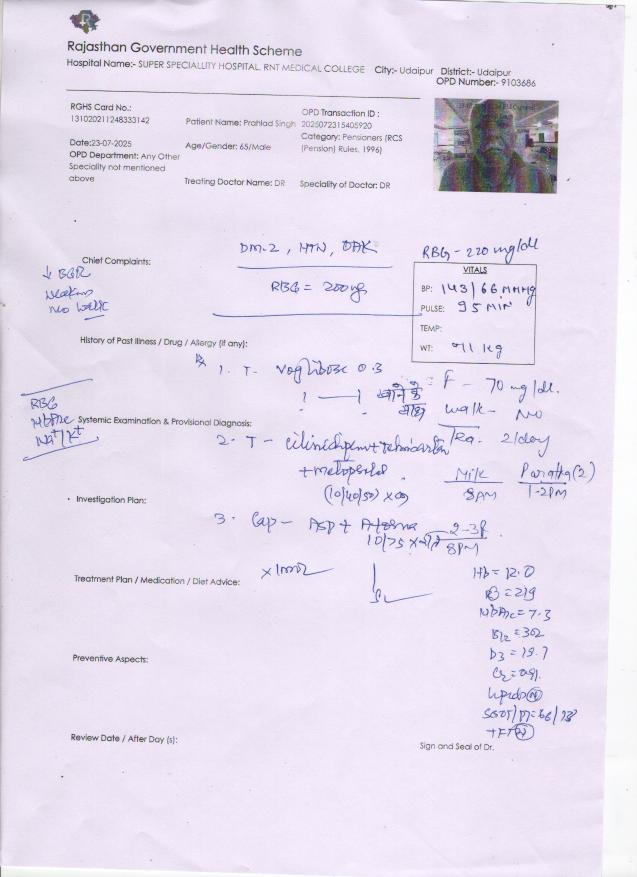 Rajasthan Government Health Scheme
Hospital Name:- SUPER SPECIALLITY HOSPITAL, RNT MEDICAL COLLEGE City:- Udaipur District:- Udaipur
OPD Number:- 9103686
RGHS Card No.:
131020211248333142
Patient Name: Prahlad Singh
OPD Transaction ID :
2025072315405920
Date:23-07-2025
Age/Gender: 65/Male
Category: Pensioners (RCS
(Pension) Rules, 1996)
OPD Department: Any Other
Speciality not mentioned
above
Treating Doctor Name: DR
Speciality of Doctor: DR
DM-2, HTN,
RBG - 220 mg/dl
Chief Complaints:
RBG = 200 mg
VITALS
BP: 143/66 MMHg
PULSE: 95 MIN
TEMP:
WT: 71 kg
No walk
History of Past Illness / Drug / Allergy (if any):
1. T- voglibose 0.3
1 — 1 खाने के
F - 70 mg/dl.
walk - No
RBG
HbA1c
Na+/K+
Systemic Examination & Provisional Diagnosis:
2. T - cilnidipin + telmisartan
Tea. 2/day
+ metoprolol
(10/40/50) x
Milk
8PM
Paratha (2)
1-2PM
Investigation Plan:
3. Cap - ASP + Atorva
10/75 x
2-3
8PM
Treatment Plan / Medication / Diet Advice:
Hb = 12.0
= 219
HbA1c = 7.3
B12 = 302
D3 = 19.7
Cr = 0.91
Lipids (N)
SGOT/PT = 66/78
TFT (N)
Preventive Aspects:
Review Date / After Day (s):
Sign and Seal of Dr.